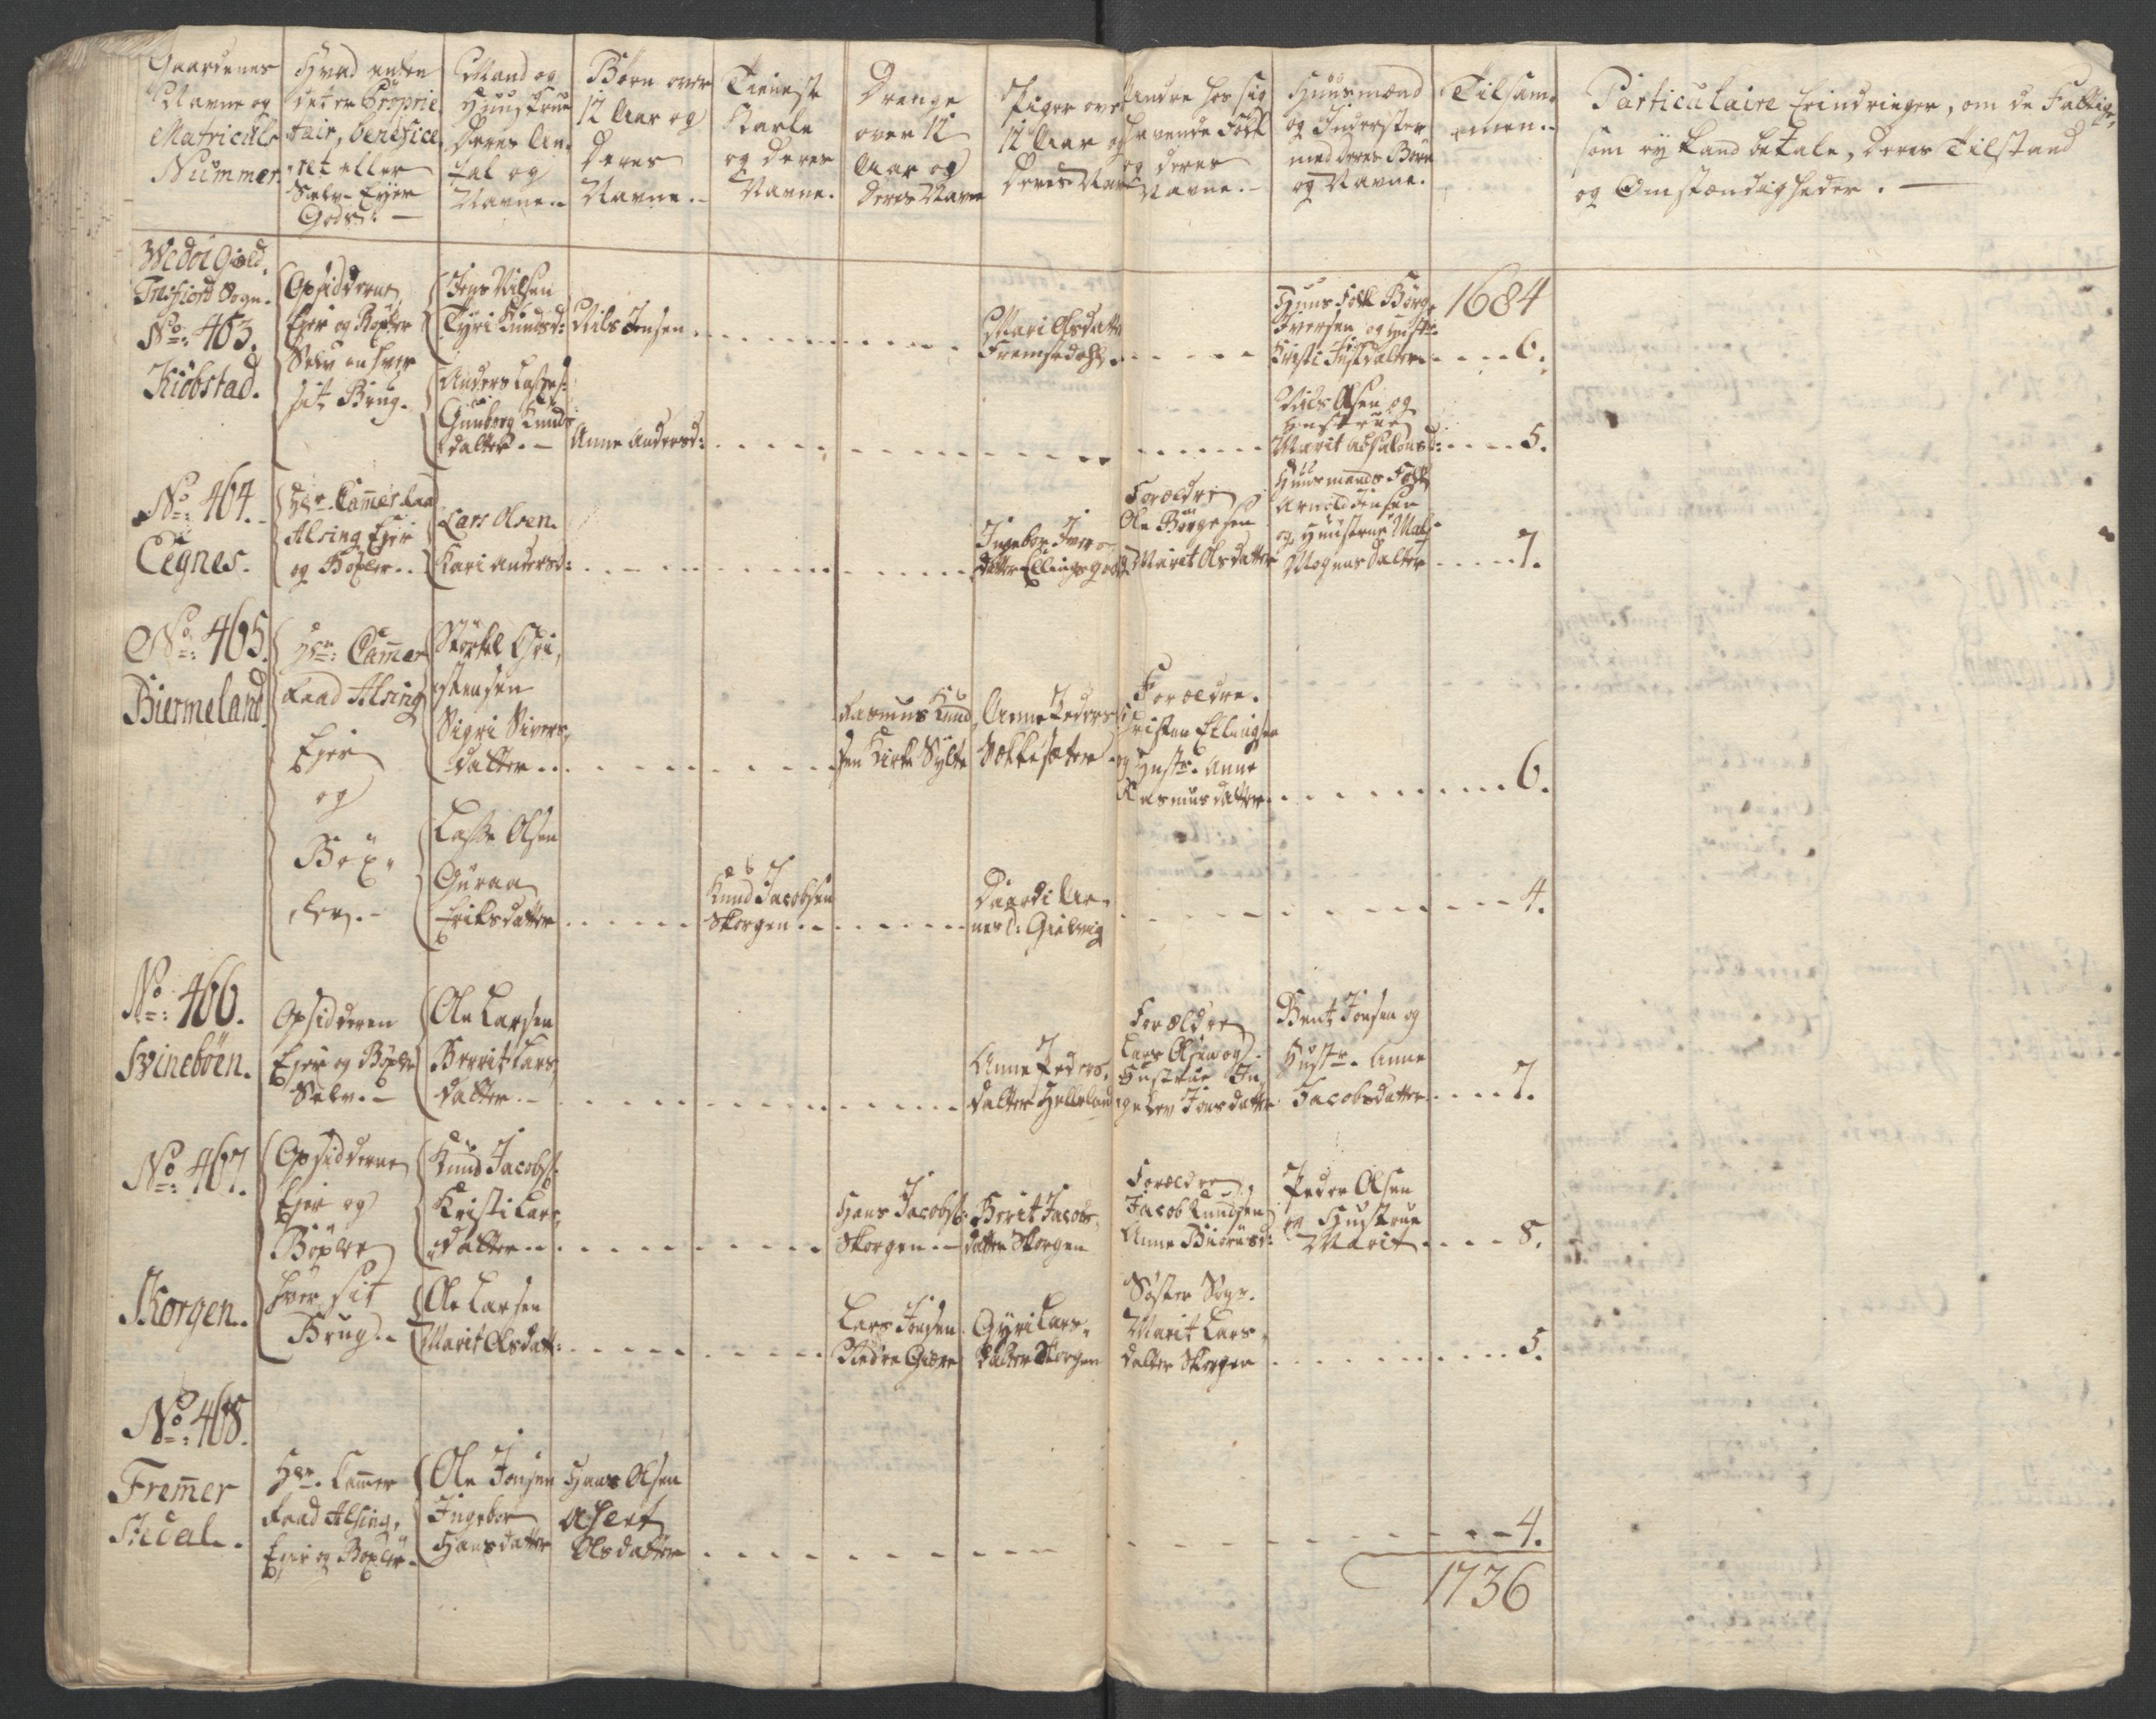 Gaardenes
Navne og
Matriculs
Nummer.
Hvad enten
det er Proprie
tair, benefice
ret eller
Selv-Eyer
Gods. -
Mand og
Hustrue
Deres An-
tal og
Navne.-
Børn over
12 Aar og
Deres
Navne.-
Tieneste
Karle
og deres
Navne.
Drenge
over 12
Aar og
deres Navne
Piger over
12 Aar og
deres Navne
Andre hos sig
havende Folk
og deres
Navne.-
Huusmænd
og Inderster
med deres Børn
og Navne.
Tilsam-
men.-
Particulaire Erindringer, om de Fattige,
som ey kand betale, deres Tilstand
og Omstændigheder. -
Wedøe Gield.
Tresfiord Sogn.
No: 463.
Kiøbstad.
Opsidderne
Ejer og Bøxler
Selv en hver
sit Brug.
Jens Nilsen
Tyri Knudsd:
Nils Jensen
Mari Olsdatter
Fremstedahl
Huus Folk Børge
Iversen og Hustr.
Kristi Justdatter
1684
6.
Anders Lasses:
Gunborg Knuds
datter. -
Anne Andersd:
Nils Olsen og
Hustrue
Marit Absalonsd:
5.
No: 464.
Eegnes.
Hr. Cammerraad
Alsing Ejer
og Bøxler..
Lars Olsen.
Kari Andersd:
Ingebor Ivers
datter Ellingsgord
Forældre
Ole Børgesen
Marit Olsdatter
Huusmands Folk
Arnold Jensen
og Huustrue
Mogensdatter
7.
No: 465.
Biermeland
Hr: Cammer
Raad Alsing
Ejer
og
Bøx-
ler. -
Størkel Chri-
stensen
Sigri Sivers
datter..
Rasmus Knud
sen Kirke Sylte
Anne Peders
Vekkesæter
Forældre.
Christen Ellingsen
og Hustr. Anne
Rasmusdatter
6.
Lasse Olsen
Guraa
Eriksdatter
Knud Jacobsen
Skorgen..
Daardi Ar-
nesd: Gielvig
4.
No: 466.
Svinebøen.
Opsidderen
Ejer og Bøxler
Selv. -
Ole Larsen
Berrit Lars
datter. -
Anne Peders-
datter Helleland
Forældre
Lars Olsen og
Hustrue In-
gelev Jonsdatter
Bent Jonsen og
Hustr. Anne
Jacobsdatter
7.
No: 467.
Skorgen..
Opsidderne
Ejer og
Bøxler
hver sit
Brug..
Knud Jacobs:
Kristi Lars
datter..
Hans Jacobs:
Skorgen.-
Berit Jacobs
datter Skorgen
Forældre
Jacob Knudsen
Anne Biørnsd:
Peder Olsen
og Hustrue
Marit
8.
Ole Larsen
Marit Olsdatt:
Lars Jonsen
Nedre Giære
Gyri Lars-
datter Skorgen
Søster Sygr.
Marit Lars-
datter Skorgen
5.
No: 468.
Fremer
stedal.
Hr. Cammer
Raad Alsing,
Ejer og Bøxler.
Ole Jonsen
Ingebor
Hansdatter
Hans Olsen
Aslet
Olsdatter
4.
1736